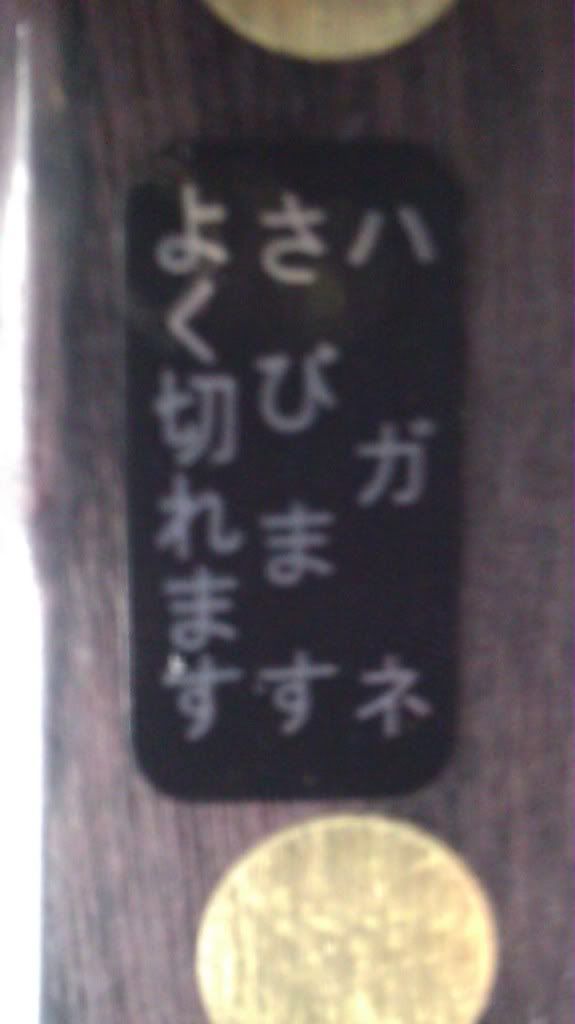 ハガネ
さびます
よく切れます